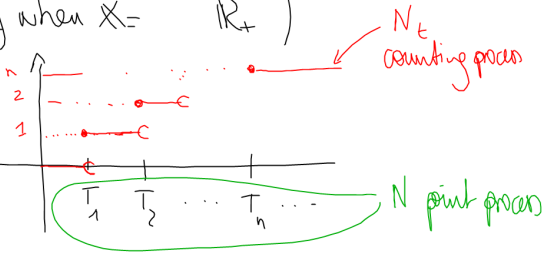 y when X = ℝ₊ )
N_t
counting process
n
2
1
T₁ T₂ ... Tₙ ...
N point process